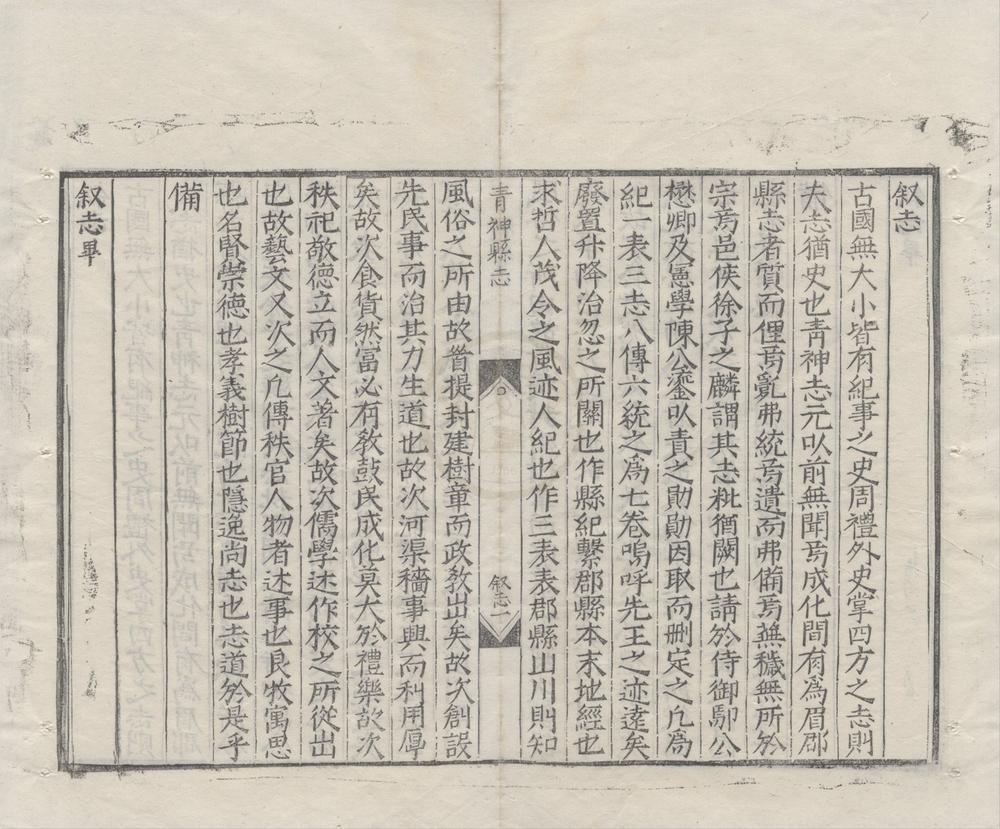 叙志
古國無大小皆有紀事之史周禮外史掌四方之志則
夫志猶史也青神志元以前無聞焉成化間有為眉郡
縣志者質而俚焉亂弗統焉遺而弗備焉蕪穢無所於
宗焉邑俠徐子之麟謂其志粃猶闕也請於侍御鄢公
懋卿及憲學陳公鎏以責之勛勛因取而刪定之凡為
紀一表三志八傳六統之為七卷嗚呼先王之迹遠矣
廢置升降治忽之所關也作縣紀繫郡縣本末地經也
求哲人茂令之風迹人紀也作三表表郡縣山川則知
青神縣志
叙志一
風俗之所由故首提封建樹章而政教出矣故次創設
先民事而治其力生道也故次河渠穡事興而利用厚
矣故次食貨然富必有教鼓民成化莫大於禮樂故次
秩祀敬德立而人文著矣故次儒學述作校之所從出
也故藝文又次之凡傳秩官人物者述事也良牧寓思
也名賢崇德也孝義樹節也隱逸尚志也志道於是乎
備
叙志畢